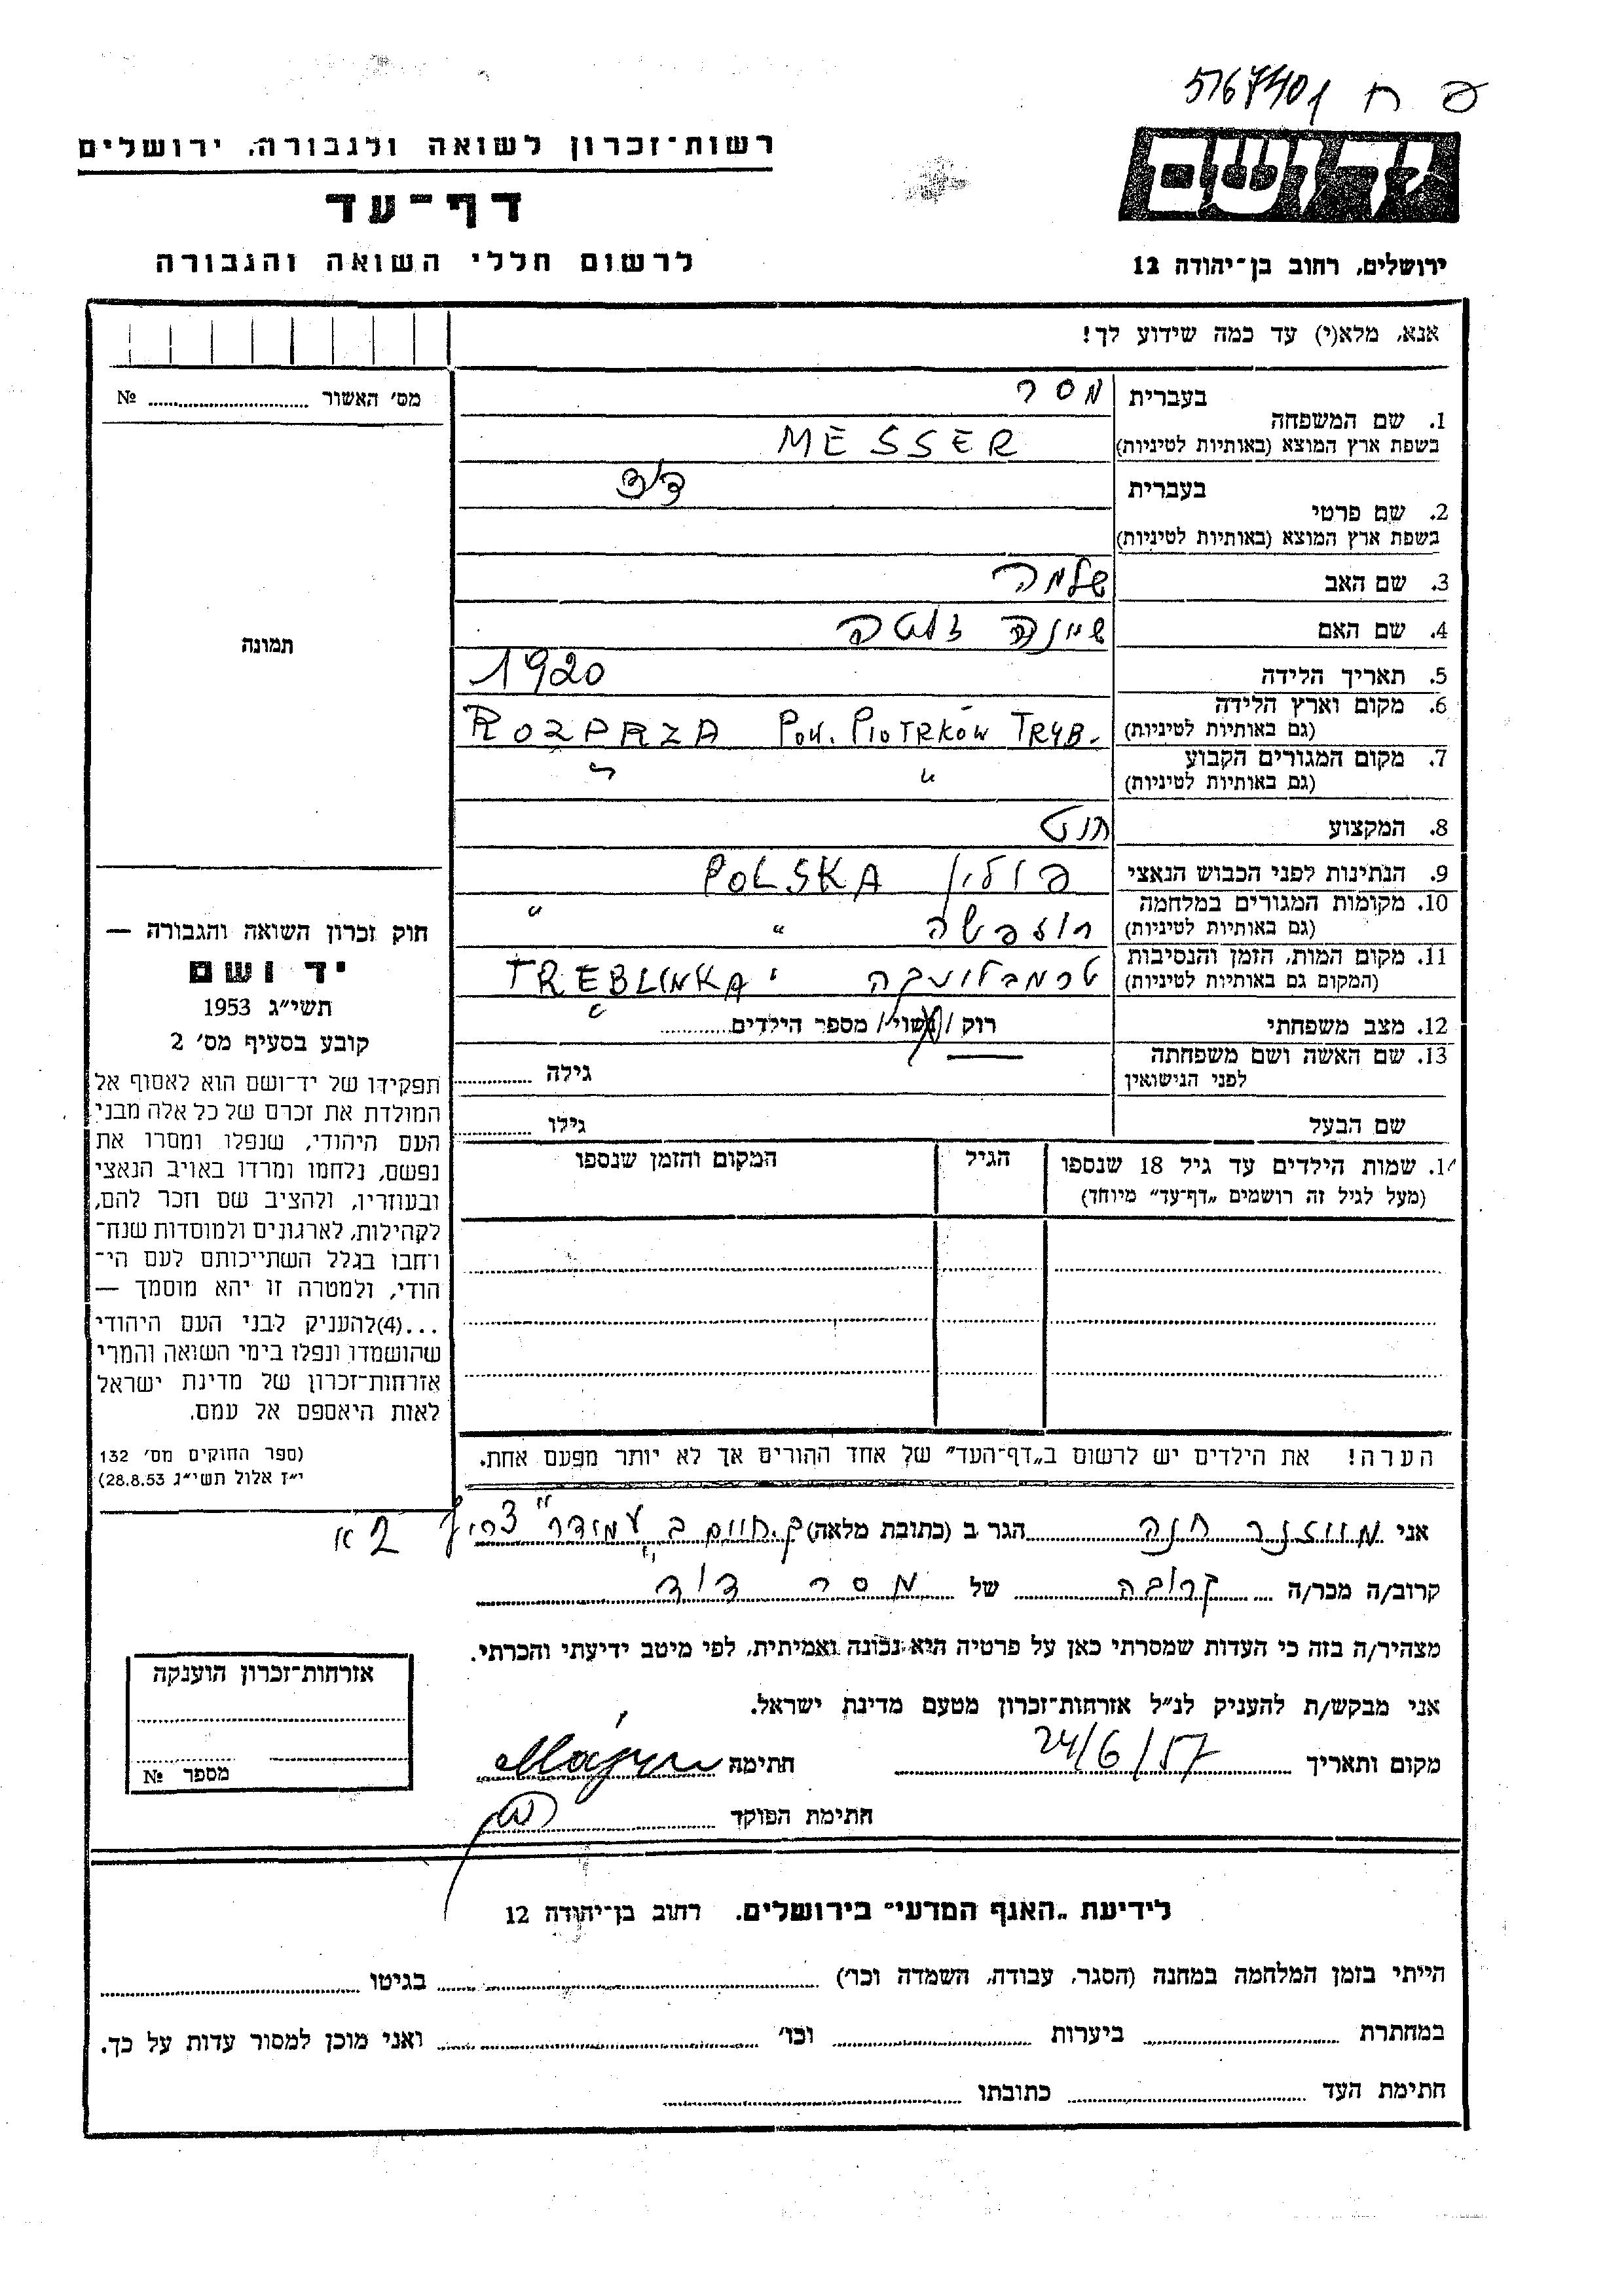 5167401 ח פ
רשות־זכרון לשואה ולגבורה, ירושלים
דף־עד
לרשום חללי השואה והגבורה
יד ושם
ירושלים, רחוב בן־יהודה 12
אנא, מלא(י) עד כמה שידוע לך!
מס׳ האשור № 
תמונה
חוק זכרון השואה והגבורה —
יד ושם
תשי״ג 1953
קובע בסעיף מס׳ 2
תפקידו של יד־ושם הוא לאסוף אל
המולדת את זכרם של כל אלה מבני
העם היהודי, שנפלו ומסרו את
נפשם, נלחמו ומרדו באויב הנאצי
ובעוזריו, ולהציב שם וזכר להם,
לקהילות, לארגונים ולמוסדות שנח־
רחבו בגלל השתייכותם לעם הי־
הודי, ולמטרה זו יהא מוסמך —
...(4)להעניק לבני העם היהודי
שהושמדו ונפלו בימי השואה והמרי
אזרחות־זכרון של מדינת ישראל
לאות היאספם אל עמם.
(ספר החוקים מס׳ 132
י״ז אלול תשי״ג 28.8.53)
1. שם המשפחה בעברית מסר
בשפת ארץ המוצא (באותיות לטיניות) MESSER
2. שם פרטי בעברית דוד
בשפת ארץ המוצא (באותיות לטיניות)
3. שם האב שלמה
4. שם האם שיינה זלטה
5. תאריך הלידה 1920
6. מקום וארץ הלידה (גם באותיות לטיניות) ROZPRZA POW. PIOTRKÓW TRYB.
7. מקום המגורים הקבוע (גם באותיות לטיניות) " "
8. המקצוע
9. הנתינות לפני הכבוש הנאצי פולין POLSKA
10. מקומות המגורים במלחמה (גם באותיות לטיניות) רוזפשה " "
11. מקום המות, הזמן והנסיבות (המקום גם באותיות לטיניות) טרמבלינקה TREBLINKA
12. מצב משפחתי רווק / נשוי / מספר הילדים
13. שם האשה ושם משפחתה לפני הנישואין גילה
שם הבעל גילו
14. שמות הילדים עד גיל 18 שנספו הגיל המקום והזמן שנספו
(מעל לגיל זה רושמים „דף־עד״ מיוחד)
הערה! את הילדים יש לרשום ב„דף־העד״ של אחד ההורים אך לא יותר מפעם אחת.
אני חנה הגר ב (כתובת מלאה) ק. חיים ב עמידר צריף 2 א
קרוב/ה מכר/ה קרובה של מסר דוד
מצהיר/ה בזה כי העדות שמסרתי כאן על פרטיה היא נכונה ואמיתית, לפי מיטב ידיעתי והכרתי.
אני מבקש/ת להעניק לנ״ל אזרחות־זכרון מטעם מדינת ישראל.
מקום ותאריך 24/6/57 חתימה
חתימת הפוקד
אזרחות־זכרון הוענקה
מספר №
לידיעת „האגף המדעי״ בירושלים, רחוב בן־יהודה 12
הייתי בזמן המלחמה במחנה (הסגר, עבודה, השמדה וכו׳) בגיטו
במחתרת ביערות וכו׳ ואני מוכן למסור עדות על כך.
חתימת העד כתובתו